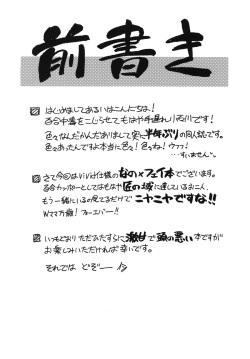 前書き
はじめましてあるいはこんにちは!
百合中毒をこじらせてもはや手遅れ!石川です!
色々なんだかんだありまして実に半年ぶりの同人誌です。
色々あったんですよ本当に色々!色々ね!ウフフ!
…すいません。
さて今回はViVid仕様のなの×フェイ本でございます。
百合カップルとしてはもはや匠の域に達しているお二人、
もう一緒にいるの見てるだけでニヤニヤですな!!
Wママ万歳!フォーエバー!!
いつもどおりただひたすらに激甘で頭の悪い本ですが
お楽しみいただければ幸いです。
それでは どぞー